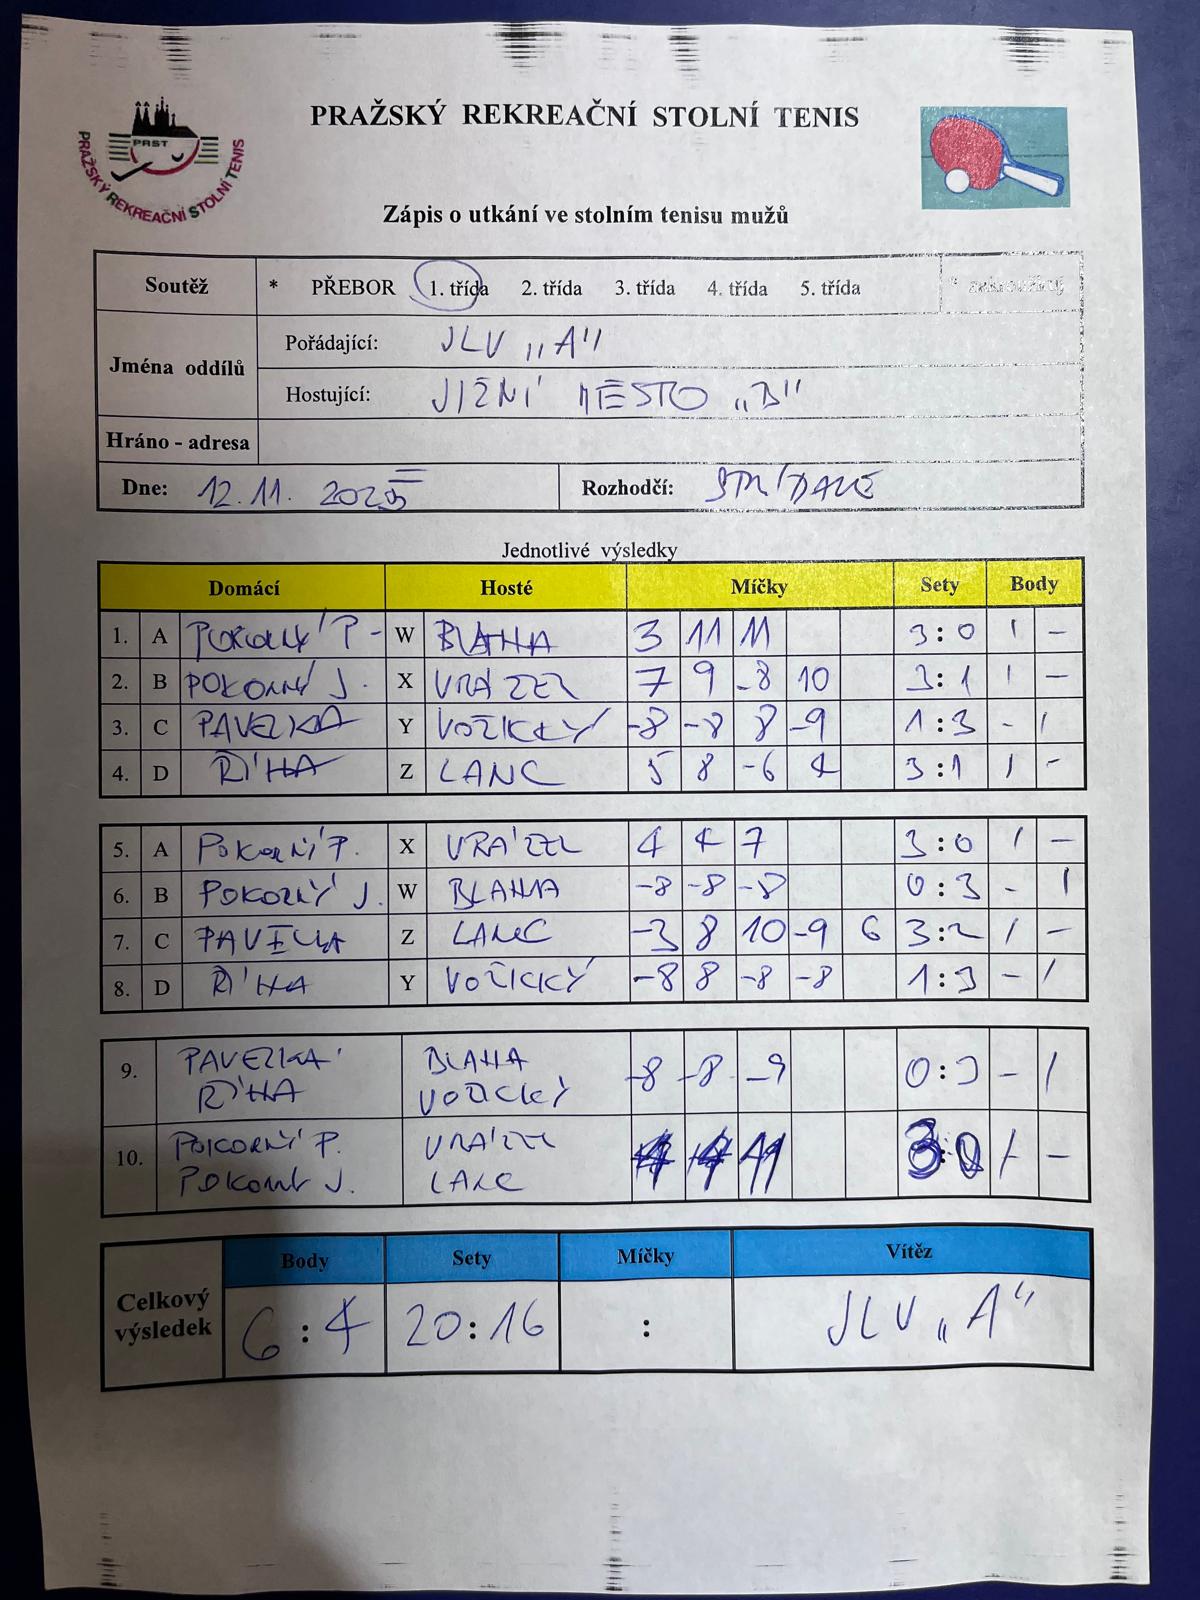 PRAŽSKÝ REKREAČNÍ STOLNÍ TENIS
PRST
PRAŽSKÝ REKREAČNÍ STOLNÍ TENIS
Zápis o utkání ve stolním tenisu mužů
Soutěž * PŘEBOR 1. třída 2. třída 3. třída 4. třída 5. třída
Jména oddílů
Pořádající: JLV „A"
Hostující: JIŽNÍ MĚSTO „B"
Hráno - adresa
Dne: 12.11. 2025 Rozhodčí: STŘÍDAVĚ
Jednotlivé výsledky
Domácí Hosté Míčky Sety Body
1. A POKORNÝ P. W BLAHA 3 11 11 3:0 1 -
2. B POKORNÝ J. X VRÁZEL 7 9 -8 10 3:1 1 -
3. C PAVELKA Y VOŽICKÝ -8 -8 8 -9 1:3 - 1
4. D ŘÍHA Z LANC 5 8 -6 4 3:1 1 -
5. A POKORNÝ P. X VRÁZEL 4 4 7 3:0 1 -
6. B POKORNÝ J. W BLAHA -8 -8 -8 0:3 - 1
7. C PAVELKA Z LANC -3 8 10 -9 6 3:2 1 -
8. D ŘÍHA Y VOŽICKÝ -8 8 -8 -8 1:3 - 1
9. PAVELKA BLAHA -8 -8 -9 0:3 - 1
ŘÍHA VOŽICKÝ
10. POKORNÝ P. VRÁZEL 3:0 1 -
POKORNÝ J. LANC
Celkový výsledek
Body Sety Míčky Vítěz
6:4 20:16 : JLV „A"